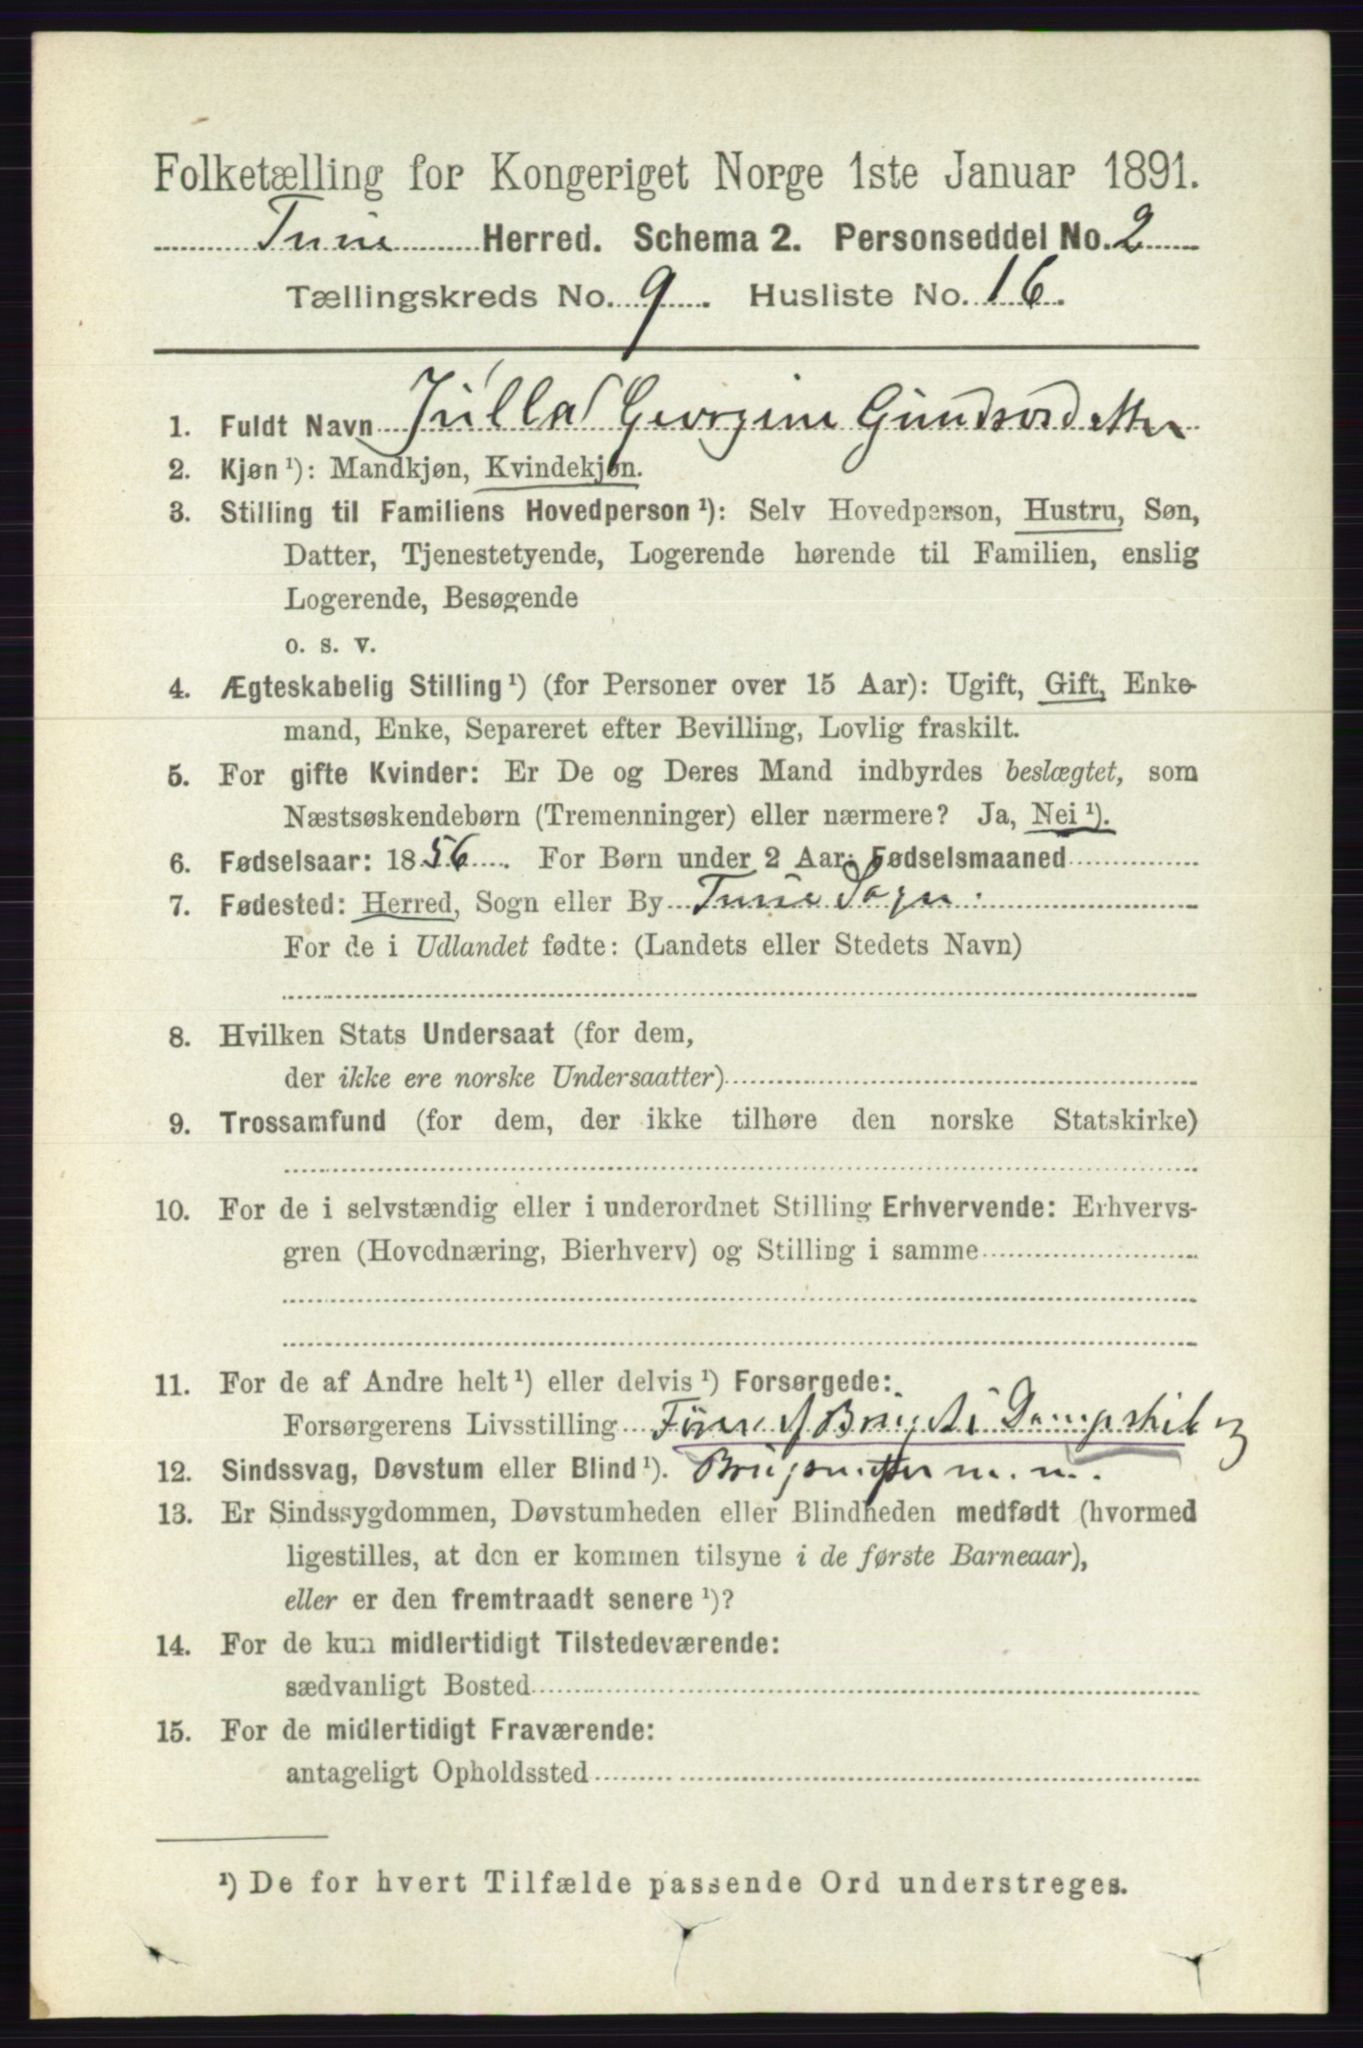 Folketælling for Kongeriget Norge 1ste Januar 1891.
Tune Herred. Schema 2. Personseddel No. 2
Tællingskreds No. 9. Husliste No. 16.
1. Fuldt Navn Julla Georgine
2. Kjøn ¹): Mandkjøn, Kvindekjøn.
3. Stilling til Familiens Hovedperson ¹): Selv Hovedperson, Hustru, Søn,
Datter, Tjenestetyende, Logerende hørende til Familien, enslig
Logerende, Besøgende
o. s. v.
4. Ægteskabelig Stilling ¹) (for Personer over 15 Aar): Ugift, Gift, Enke-
mand, Enke, Separeret efter Bevilling, Lovlig fraskilt.
5. For gifte Kvinder: Er De og Deres Mand indbyrdes beslægtet, som
Næstsøskendebørn (Tremenninger) eller nærmere? Ja, Nei ¹).
6. Fødselsaar: 1856. For Børn under 2 Aar: Fødselsmaaned
7. Fødested: Herred, Sogn eller By Tune Sogn.
For de i Udlandet fødte: (Landets eller Stedets Navn)
8. Hvilken Stats Undersaat (for dem,
der ikke ere norske Undersaatter)
9. Trossamfund (for dem, der ikke tilhøre den norske Statskirke)
10. For de i selvstændig eller i underordnet Stilling Erhvervende: Erhvervs-
gren (Hovednæring, Bierhverv) og Stilling i samme
11. For de af Andre helt ¹) eller delvis ¹) Forsørgede:
Forsørgerens Livsstilling Dampskib
12. Sindssvag, Døvstum eller Blind ¹). m. m.
13. Er Sindssygdommen, Døvstumheden eller Blindheden medfødt (hvormed
ligestilles, at den er kommen tilsyne i de første Barneaar),
eller er den fremtraadt senere ¹)?
14. For de kun midlertidigt Tilstedeværende:
sædvanligt Bosted
15. For de midlertidigt Fraværende:
antageligt Opholdssted
¹) De for hvert Tilfælde passende Ord understreges.